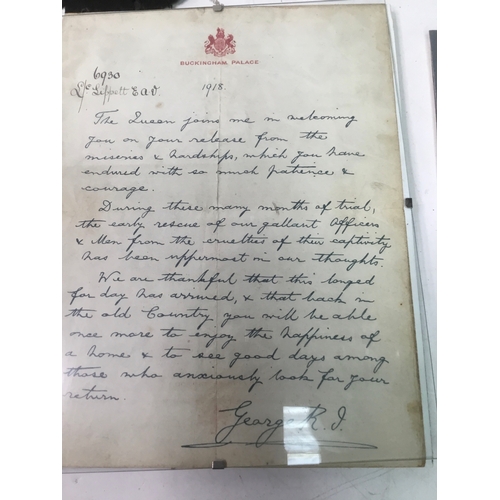 BUCKINGHAM PALACE
6930
L/c Lippett E A V. 1918.
The Queen joins me in welcoming
you on your release from the
miseries & hardships, which you have
endured with so much patience &
courage.
During these many months of trial,
the early rescue of our gallant Officers
& Men from the cruelties of their captivity
has been uppermost in our thoughts.
We are thankful that this longed
for day has arrived, & that back in
the old Country you will be able
once more to enjoy the happiness of
a home & to see good days among
those who anxiously look for your
return.
George R.I.